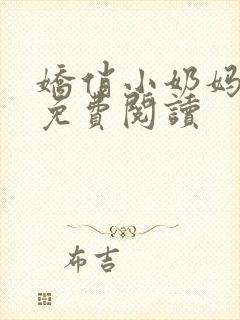 嬌俏小奶媽
免費閱讀
布吉